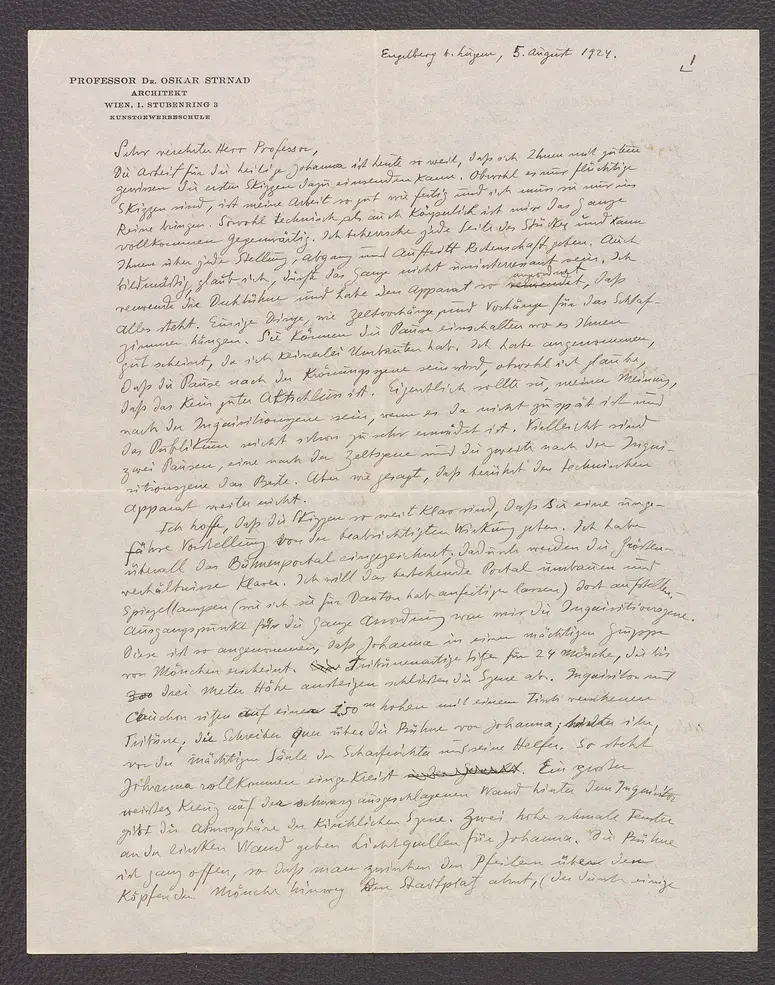 Engelberg b. Luzern, 5. August 1924.
1
PROFESSOR DR. OSKAR STRNAD
ARCHITEKT
WIEN, I. STUBENRING 3
KUNSTGEWERBESCHULE
Sehr verehrter Herr Professor,
Die Arbeit für die heilige Johanna ist heute so weit, daß ich Ihnen mit gutem
gewissen die ersten Skizzen dazu einsenden kann. Obwohl es nur flüchtige
Skizzen sind, ist meine Arbeit so gut wie fertig und ich muss sie nur ins
Reine bringen. Sowohl technisch als auch körperlich ist mir das Ganze
vollkommen gegenwärtig. Ich beherrsche jede Seite des Stückes und kann
Ihnen über jede Stellung, Abgang und Auftritt Rechenschaft geben. Auch
bildmäßig, glaub ich, dürfte das Ganze nicht uninteressant sein. Ich
verwende die Drehbühne und habe den Apparat so angeordnet, daß
alles steht. Einzige Dinge, wie Zeltvorhänge und Vorhänge für das Schlaf-
zimmer hängen. Sie können die Pause einschalten wo es Ihnen
gut scheint, da ich keinerlei Umbauten hab. Ich habe angenommen,
daß die Pause nach der Krönungsszene sein wird, obwohl ich glaube,
daß das kein guter Aktschluss ist. Eigentlich sollte sie, meiner Meinung,
nach der Inquisitionszene sein, wenn es da nicht zu spät ist und
das Publikum nicht schon zu sehr ermüdet ist. Vielleicht sind
zwei Pausen, eine nach der Zeltszene und die zweite nach der Inqui-
sitionszene das Beste. Aber wie gesagt, daß berührt den technischen
Apparat weiter nicht.
Ich hoffe, daß die Skizzen so weit klar sind, daß Sie eine unge-
fähre Vorstellung von der beabsichtigten Wirkung geben. Ich habe
überall das Bühnenportal eingezeichnet, dadurch werden die Größen-
verhältnisse klarer. Ich will das bestehende Portal umbauen und
Spiegellampen (wie ich sie für Danton hab anfertigen lassen) dort aufstellen.
Ausgangspunkt für die ganze Anordnung war mir die Inquisitionszene.
Diese ist so angenommen, daß Johanna in einer mächtigen Gruppe
von Mönchen erscheint. Tribünenartige Sitze für 24 Mönche, die bis
drei Meter Höhe ansteigen schließen die Szene ab. Inquisitor und
Cauchon sitzen auf einer 1,50 m hohen mit einem Tisch versehenen
Tribüne, die Schreiber quer über die Bühne vor Johanna, hinter ihr,
vor der mächtigen Säule der Scharfrichter und seine Helfer. So steht
Johanna vollkommen eingekreist. Ein großes
weißes Kreuz auf der schwarz ausgeschlagenen Wand hinter dem Inquisitor
gibt die Atmosphäre der kirchlichen Szene. Zwei hohe schmale Fenster
an der linken Wand geben Lichtquellen für Johanna. Die Bühne
ist ganz offen, so daß man zwischen den Pfeilern über den
Köpfen der Mönche hinweg den Stadtplatz ahnt, (der durch einige